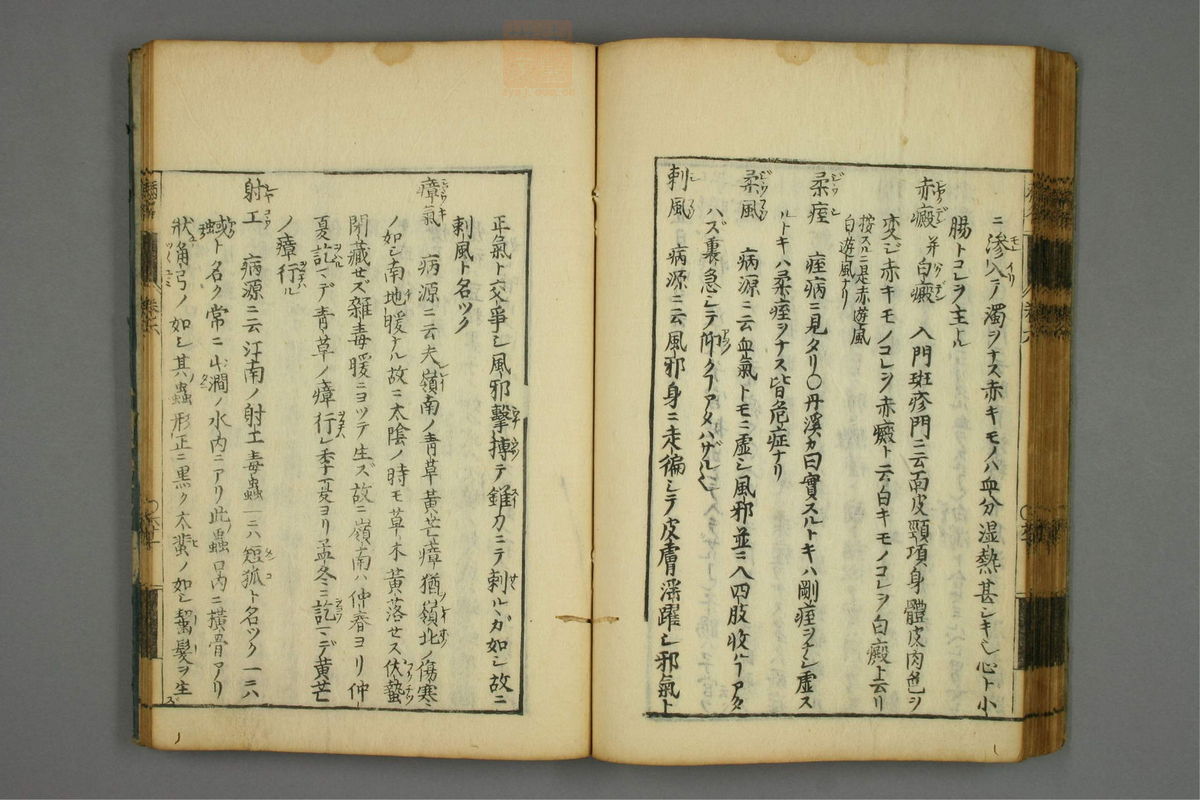 ニ滲入テ濁ヲナス赤キモノハ血分湿熱甚シキシ心ト小
腸トコレヲ主ル
赤癜并白癜 入門斑疹門ニ云面皮頸項身體皮肉色シ
変シ赤キモノコレシ赤癜ト云白キモノコレヲ白癜ト云リ
按スルニ是赤遊風
白遊風ナリ
柔痓 痓病ニ見タリ〇丹溪カ曰實スルトキハ剛痓ヲナシ虚ス
ルトキハ柔痓ヲナス皆危症ナリ
柔風 病源ニ云血氣トモニ虚シ風邪並ニ入四肢收ルヿアタ
ハズ裏急シテ仰クヿアタハザル
刺風 病源ニ云風邪身ニ走徧シテ皮膚淫躍シ邪氣ト
正氣ト交爭シ風邪擊搏テ錐刀ニテ刺ルガ如シ故ニ
刺風ト名ツク
瘴氣 病源ニ云夫嶺南ノ青草黄芒瘴猶嶺北ノ傷寒
ノ如シ南地暖ナル故ニ太陰ノ時モ草木黄落セス伏蟄
閉藏セズ雑毒暖ニヨツテ生ズ故ニ嶺南ハ仲春ヨリ仲
夏訖マデ青草ノ瘴行レ季夏ヨリ孟冬ニ訖マデ黄芒
ノ瘴行ル
射工 病源ニ云江南ノ射工毒蟲一ニハ短狐ト名ツク一ニハ
蜮ト名ク常ニ山澗ノ水内ニアリ此蟲口内ニ横骨アリ
狀角弓ノ如シ其蟲形正ニ黒ク大蜚ノ如シ齧髮ヲ生